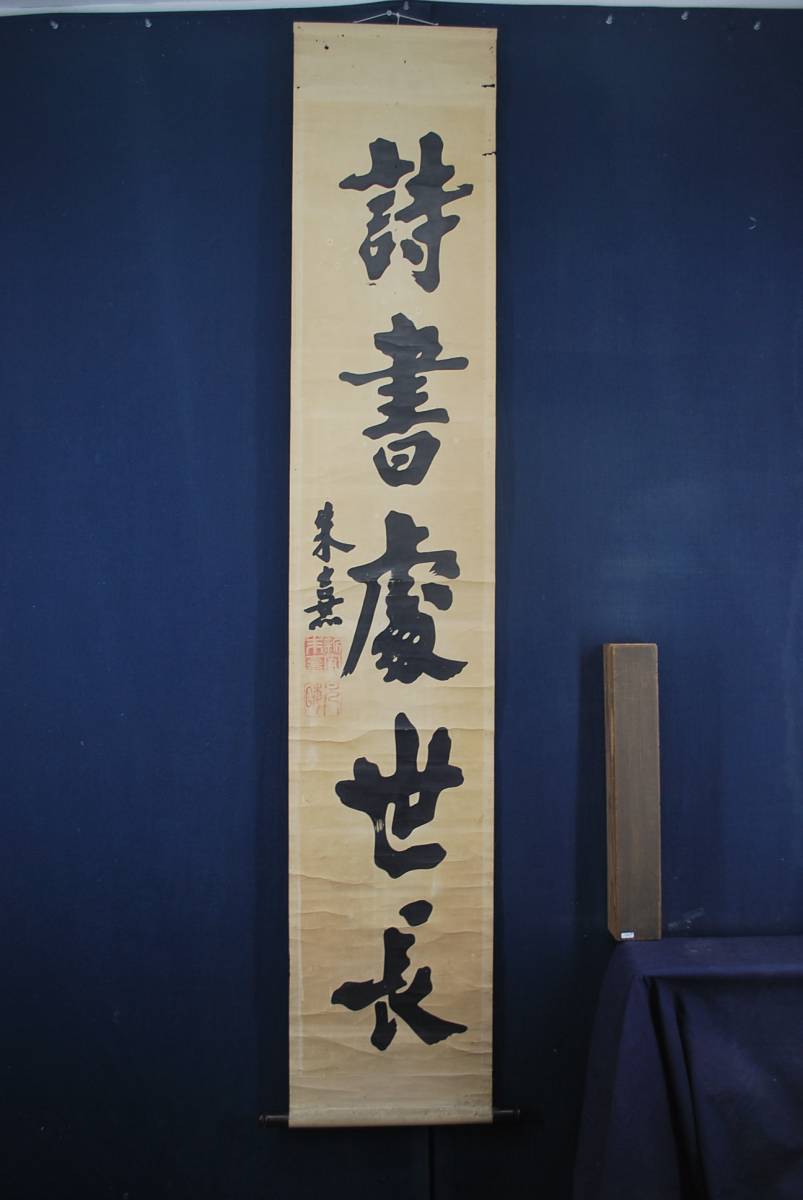 詩書處世長
朱熹